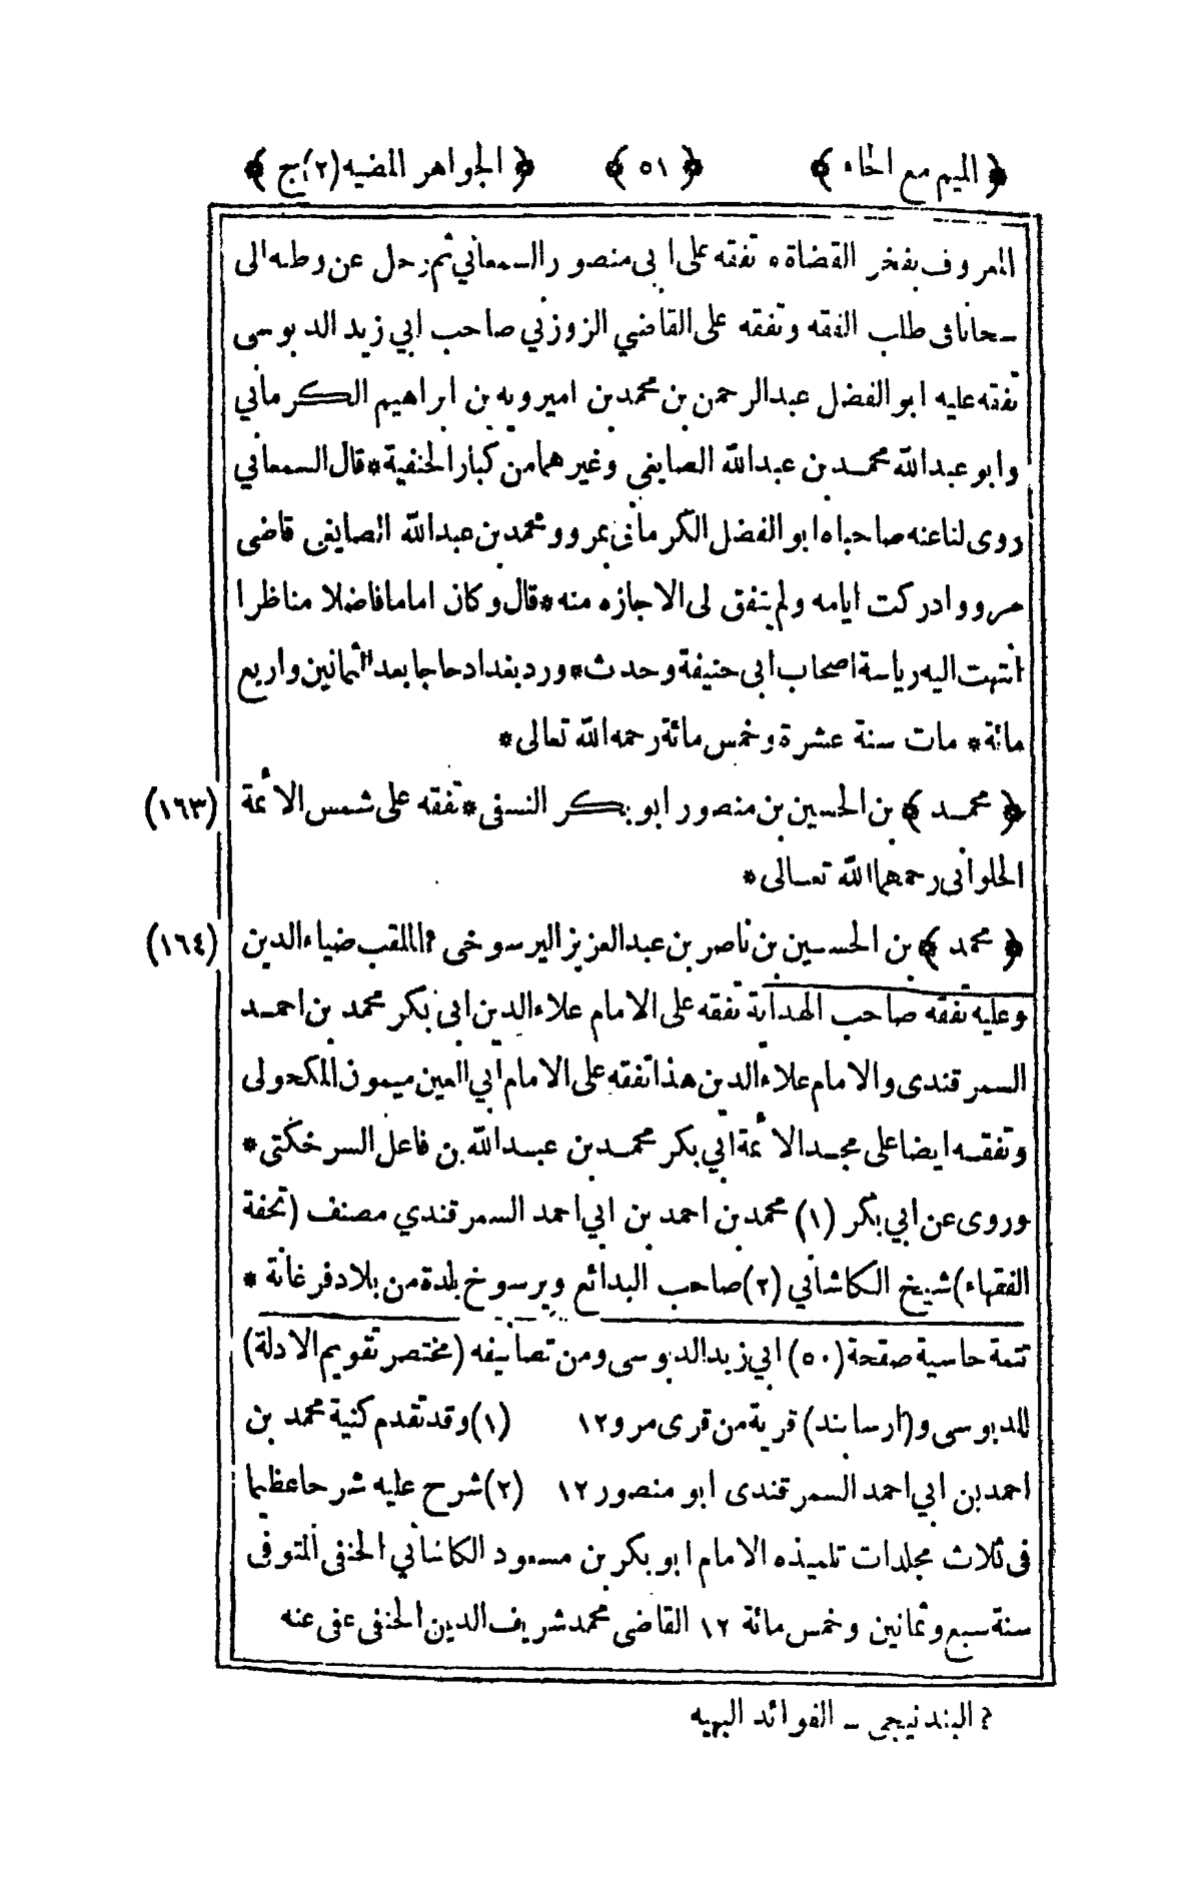 ﴿ الميم مع الحاء ﴾ ﴿ ٥١ ﴾ ﴿ الجواهر المضيه (٢) ج ﴾
المعروف بفخر القضاة * تفقه على ابى منصور السمعاني ثم رحل عن وطنه الى
سحانا فى طلب الفقه وتفقه على القاضي الزوزني صاحب ابي زيد الدبوسى
تفقه عليه ابو الفضل عبدالرحمن بن محمد بن اميرويه بن ابراهيم الكرماني
وابو عبدالله محمد بن عبدالله الصايغي وغيرهما من كبار الحنفية * قال السمعاني
روى لنا عنه صاحباه ابو الفضل الكرمانى بمرو ومحمد بن عبدالله الصايغى قاضى
مرو وادركت ايامه ولم يتفق لى الاجازه منه * قال وكان اماما فاضلا مناظرا
انتهت اليه رياسة اصحاب ابى حنيفة وحدث * ورد بغداد حاجا بعد الثمانين واربع
مائة * مات سنة عشرة وخمس مائة رحمه الله تعالى *
﴿ محمد ﴾ بن الحسين بن منصور ابو بكر النسفى * تفقه على شمس الائمة (١٦٣)
الحلوانى رحمهما الله تعالى *
﴿ محمد ﴾ بن الحسين بن ناصر بن عبدالعزيز اليرسوخى ۲ الملقب ضياء الدين (١٦٤)
وعليه تفقه صاحب الهداية تفقه على الامام علاء الدين ابى بكر محمد بن احمد
السمرقندى والامام علاء الدين هذا تفقه على الامام ابي المعين ميمون المكحولى
وتفقه ايضا على مجد الائمة ابي بكر محمد بن عبدالله بن فاعل السرخكتى *
وروى عن ابي بكر (١) محمد بن احمد بن ابي احمد السمرقندي مصنف (تحفة
الفقهاء) شيخ الكاشاني (٢) صاحب البدائع ويرسوخ بلدة من بلاد فرغانة *
تتمة حاسية صفحة (٥٠) ابي زيد الدبوسى ومن تصانيفه (مختصر تقويم الادلة)
للدبوسى و(ارسابند) قرية من قرى مرو ١٢ (١) وقد تقدم كنية محمد بن
احمد بن ابي احمد السمرقندى ابو منصور ١٢ (٢) شرح عليه شرحا عظيما
فى ثلاث مجلدات تلميذه الامام ابو بكر بن مسعود الكاشاني الحنفى المتوفى
سنة سبع وثمانين وخمس مائة ١٢ القاضى محمد شريف الدين الحنفى عفى عنه
۲ البندنيجى ــ الفوائد البهيه